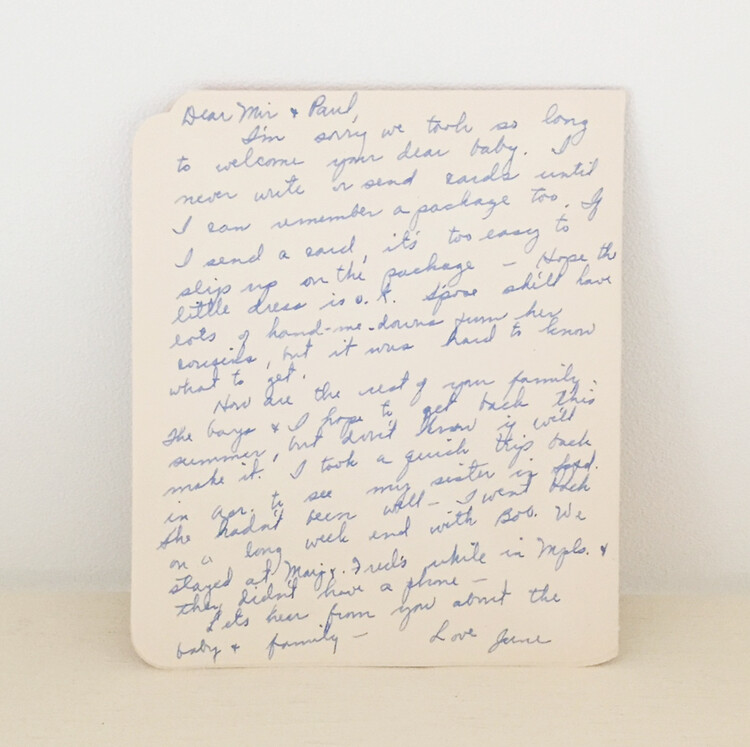 Dear Mir & Paul,
I'm sorry we took so long
to welcome your dear baby. I
never write or send cards until
I can remember a package too. If
I send a card, it's too easy to
slip up on the package – Hope the
little dress is o.k. Spose she'll have
lots of hand-me-downs from her
cousins, but it was hard to know
what to get.
How are the rest of your family.
The boys & I hope to get back this
summer, but don't know if will
make it. I took a quick trip back
in to see my sister in
She hadn't been well – I went back
on a long week end with Bob. We
stayed at Marj & Fred's while in Mpls. &
they didn't have a phone –
Lets hear from you about the
baby & family –
Love June